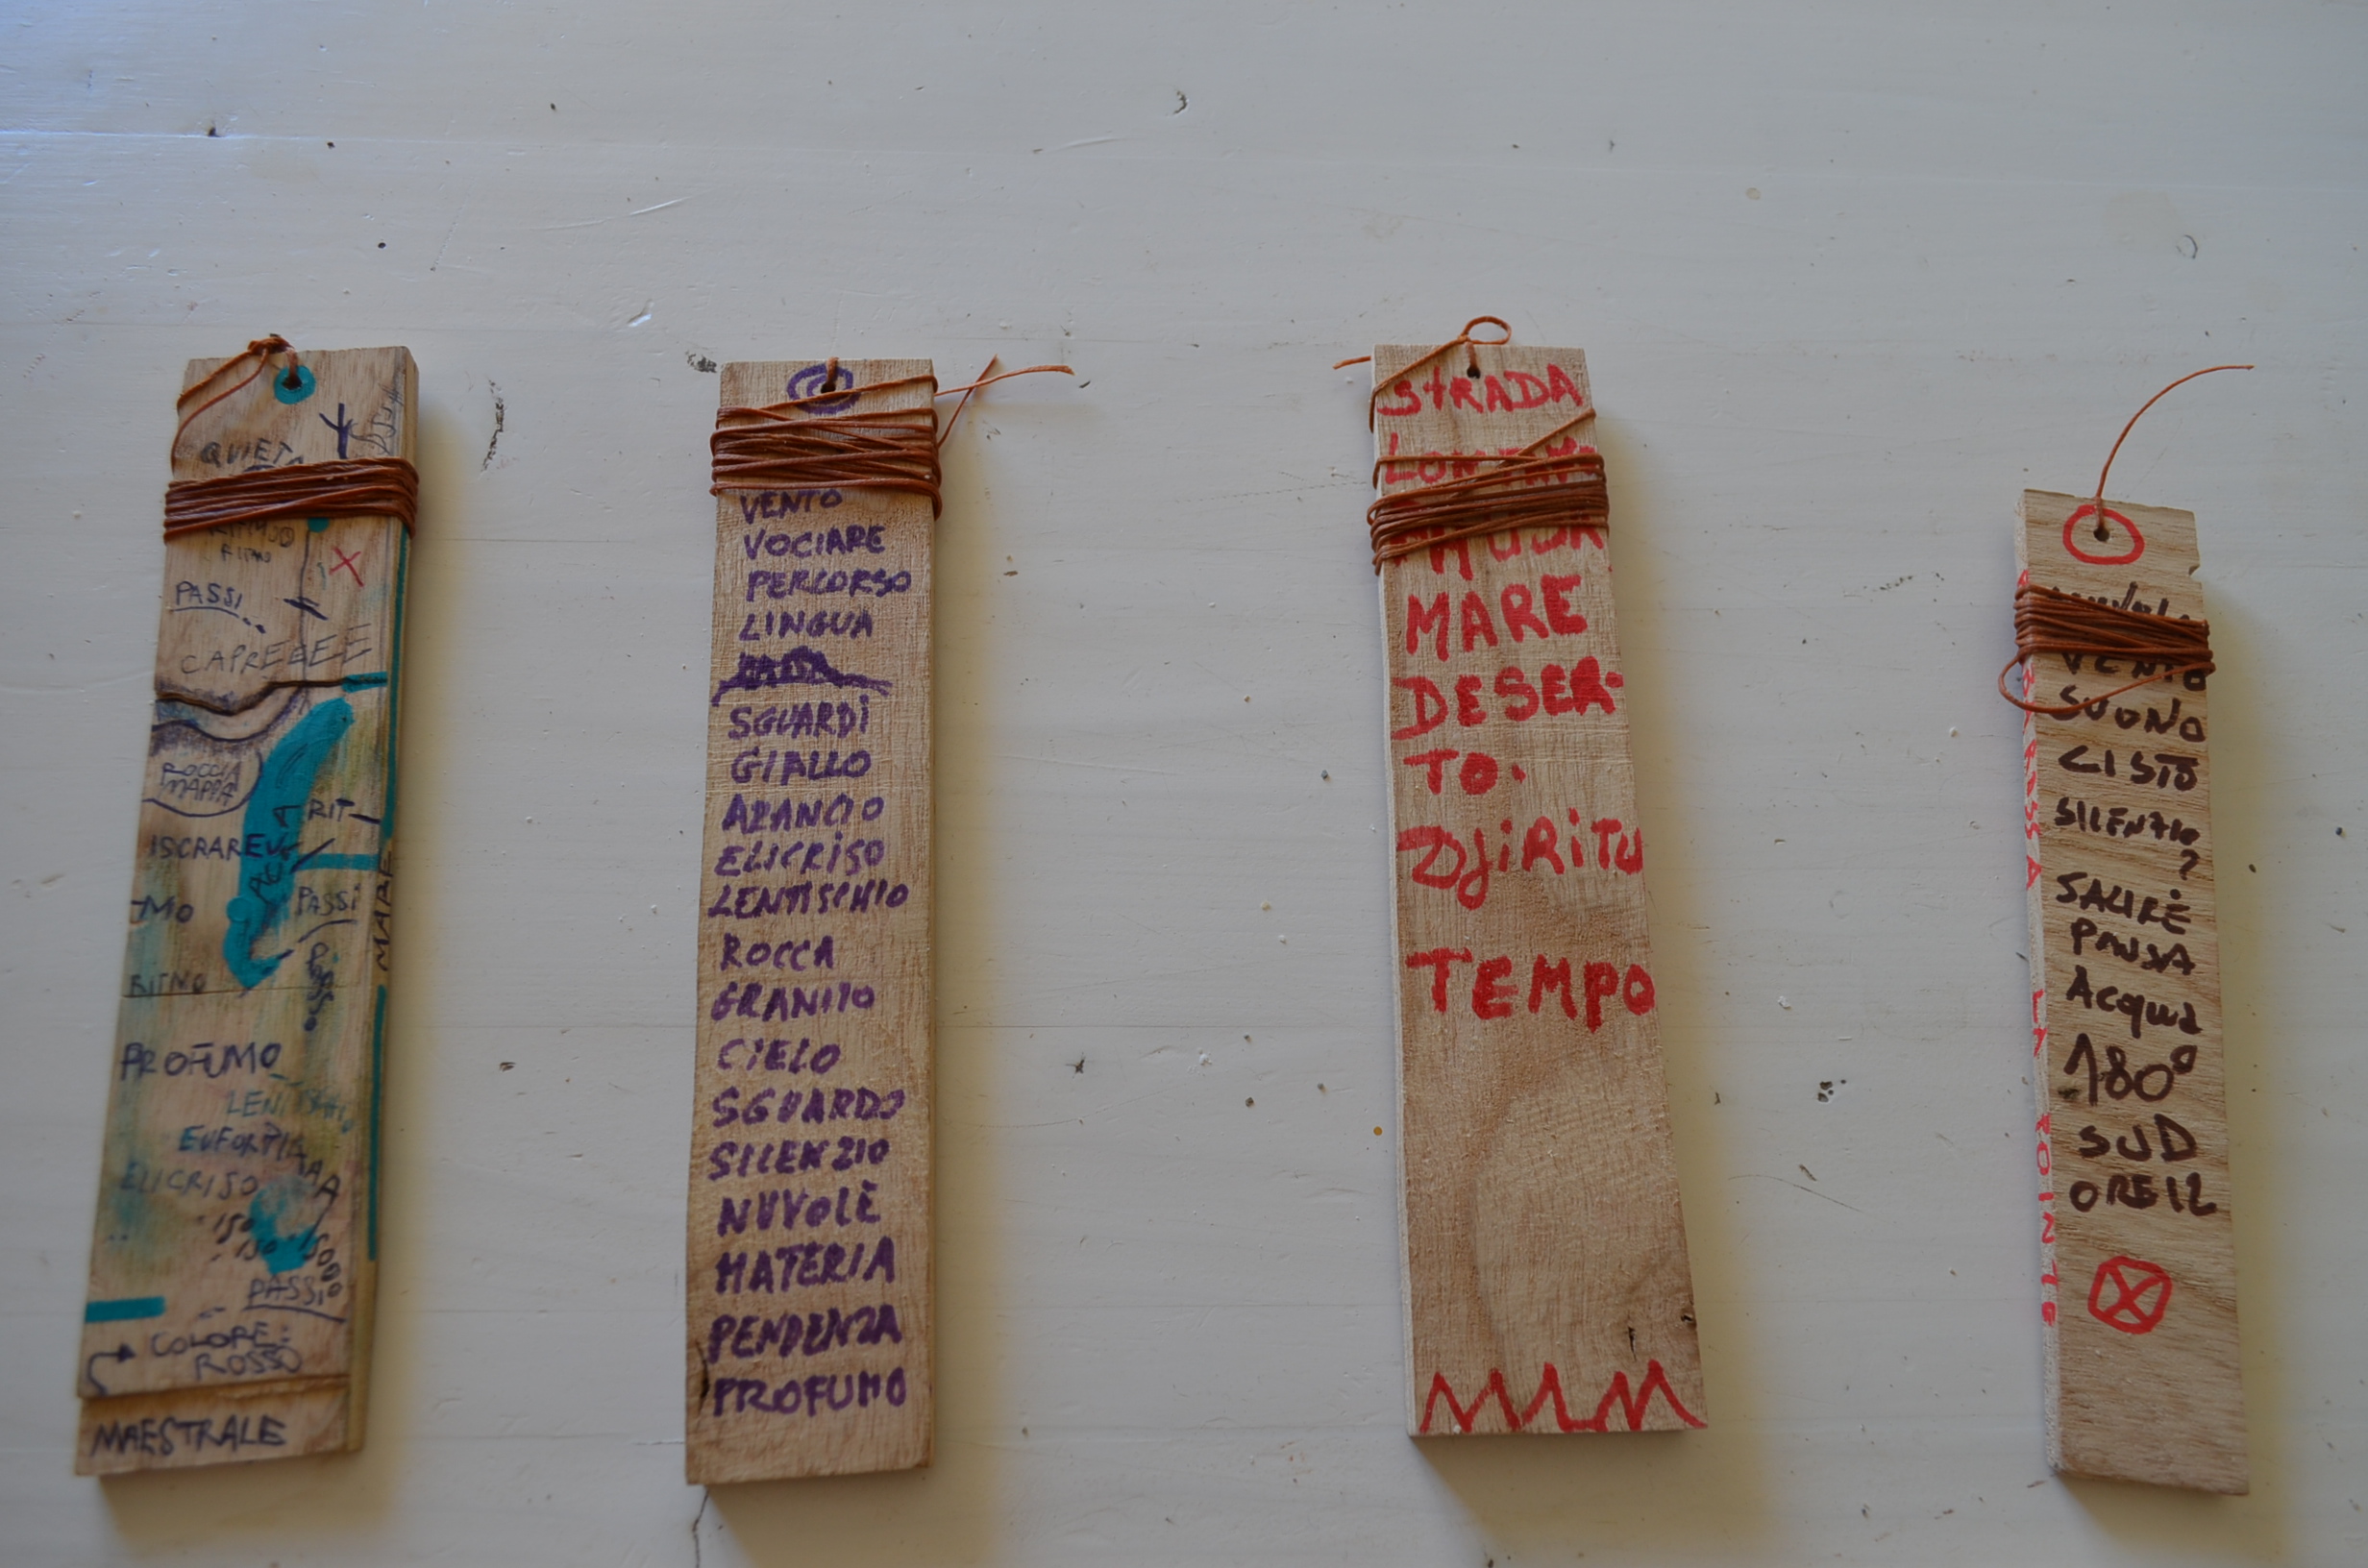 PASSI
CAPREEEEE
ROCCIA
MAPPA
RIT-
ISCRAREU
-MO
PASSI
MARE
RITMO
PROFUMO
EUFORPIAAAA
ELICRISO
PASSI
COLORE
ROSSO
MAESTRALE
VENTO
VOCIARE
PERCORSO
LINGUA
SGUARDI
GIALLO
ARANCIO
ELICRISO
LENTISCHIO
ROCCA
GRANITO
CIELO
SGUARDO
SILENZIO
NUVOLE
MATERIA
PENDENZA
PROFUMO
STRADA
MARE
DESER-
TO.
DJIRITU
TEMPO
VENTO
SUONO
CISTO
SILENZIO
?
SALIRE
PAUSA
Acqua
180°
SUD
ORE 12